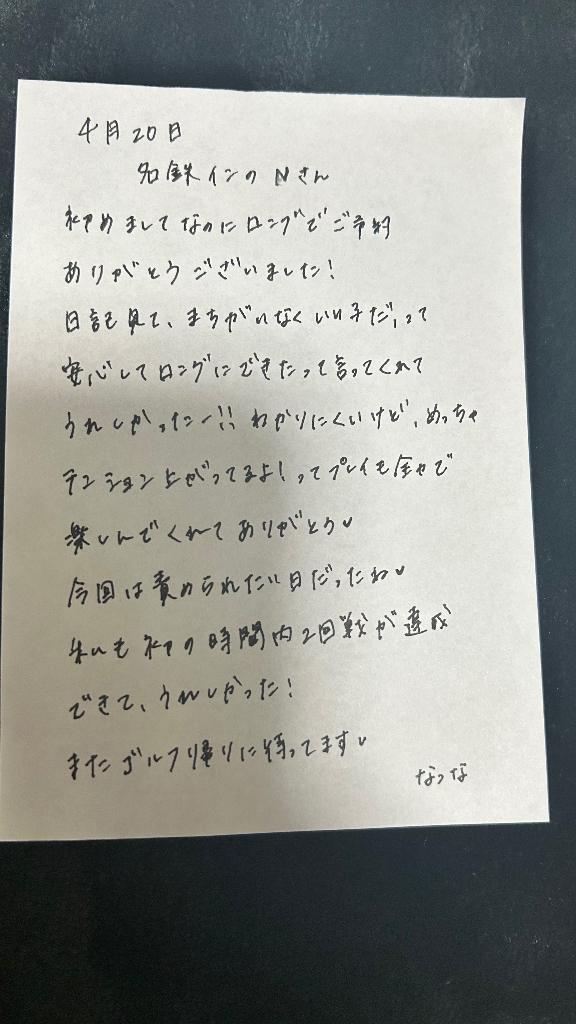 4月20日
名鉄インのNさん
初めましてなのにロングでご予約
ありがとうございました!
日記見て、まちがいなくいい子だ、って
安心してロングにできたって言ってくれて
うれしかったー!! わかりにくいけど、めっちゃ
テンション上がってるよ!ってプレイも全力で
楽しんでくれてありがとう♥
今回は責められたい日だったね♥
私も初の時間内2回戦が達成
できて、うれしかった!
またゴルフ帰りに待ってます♥
なつな